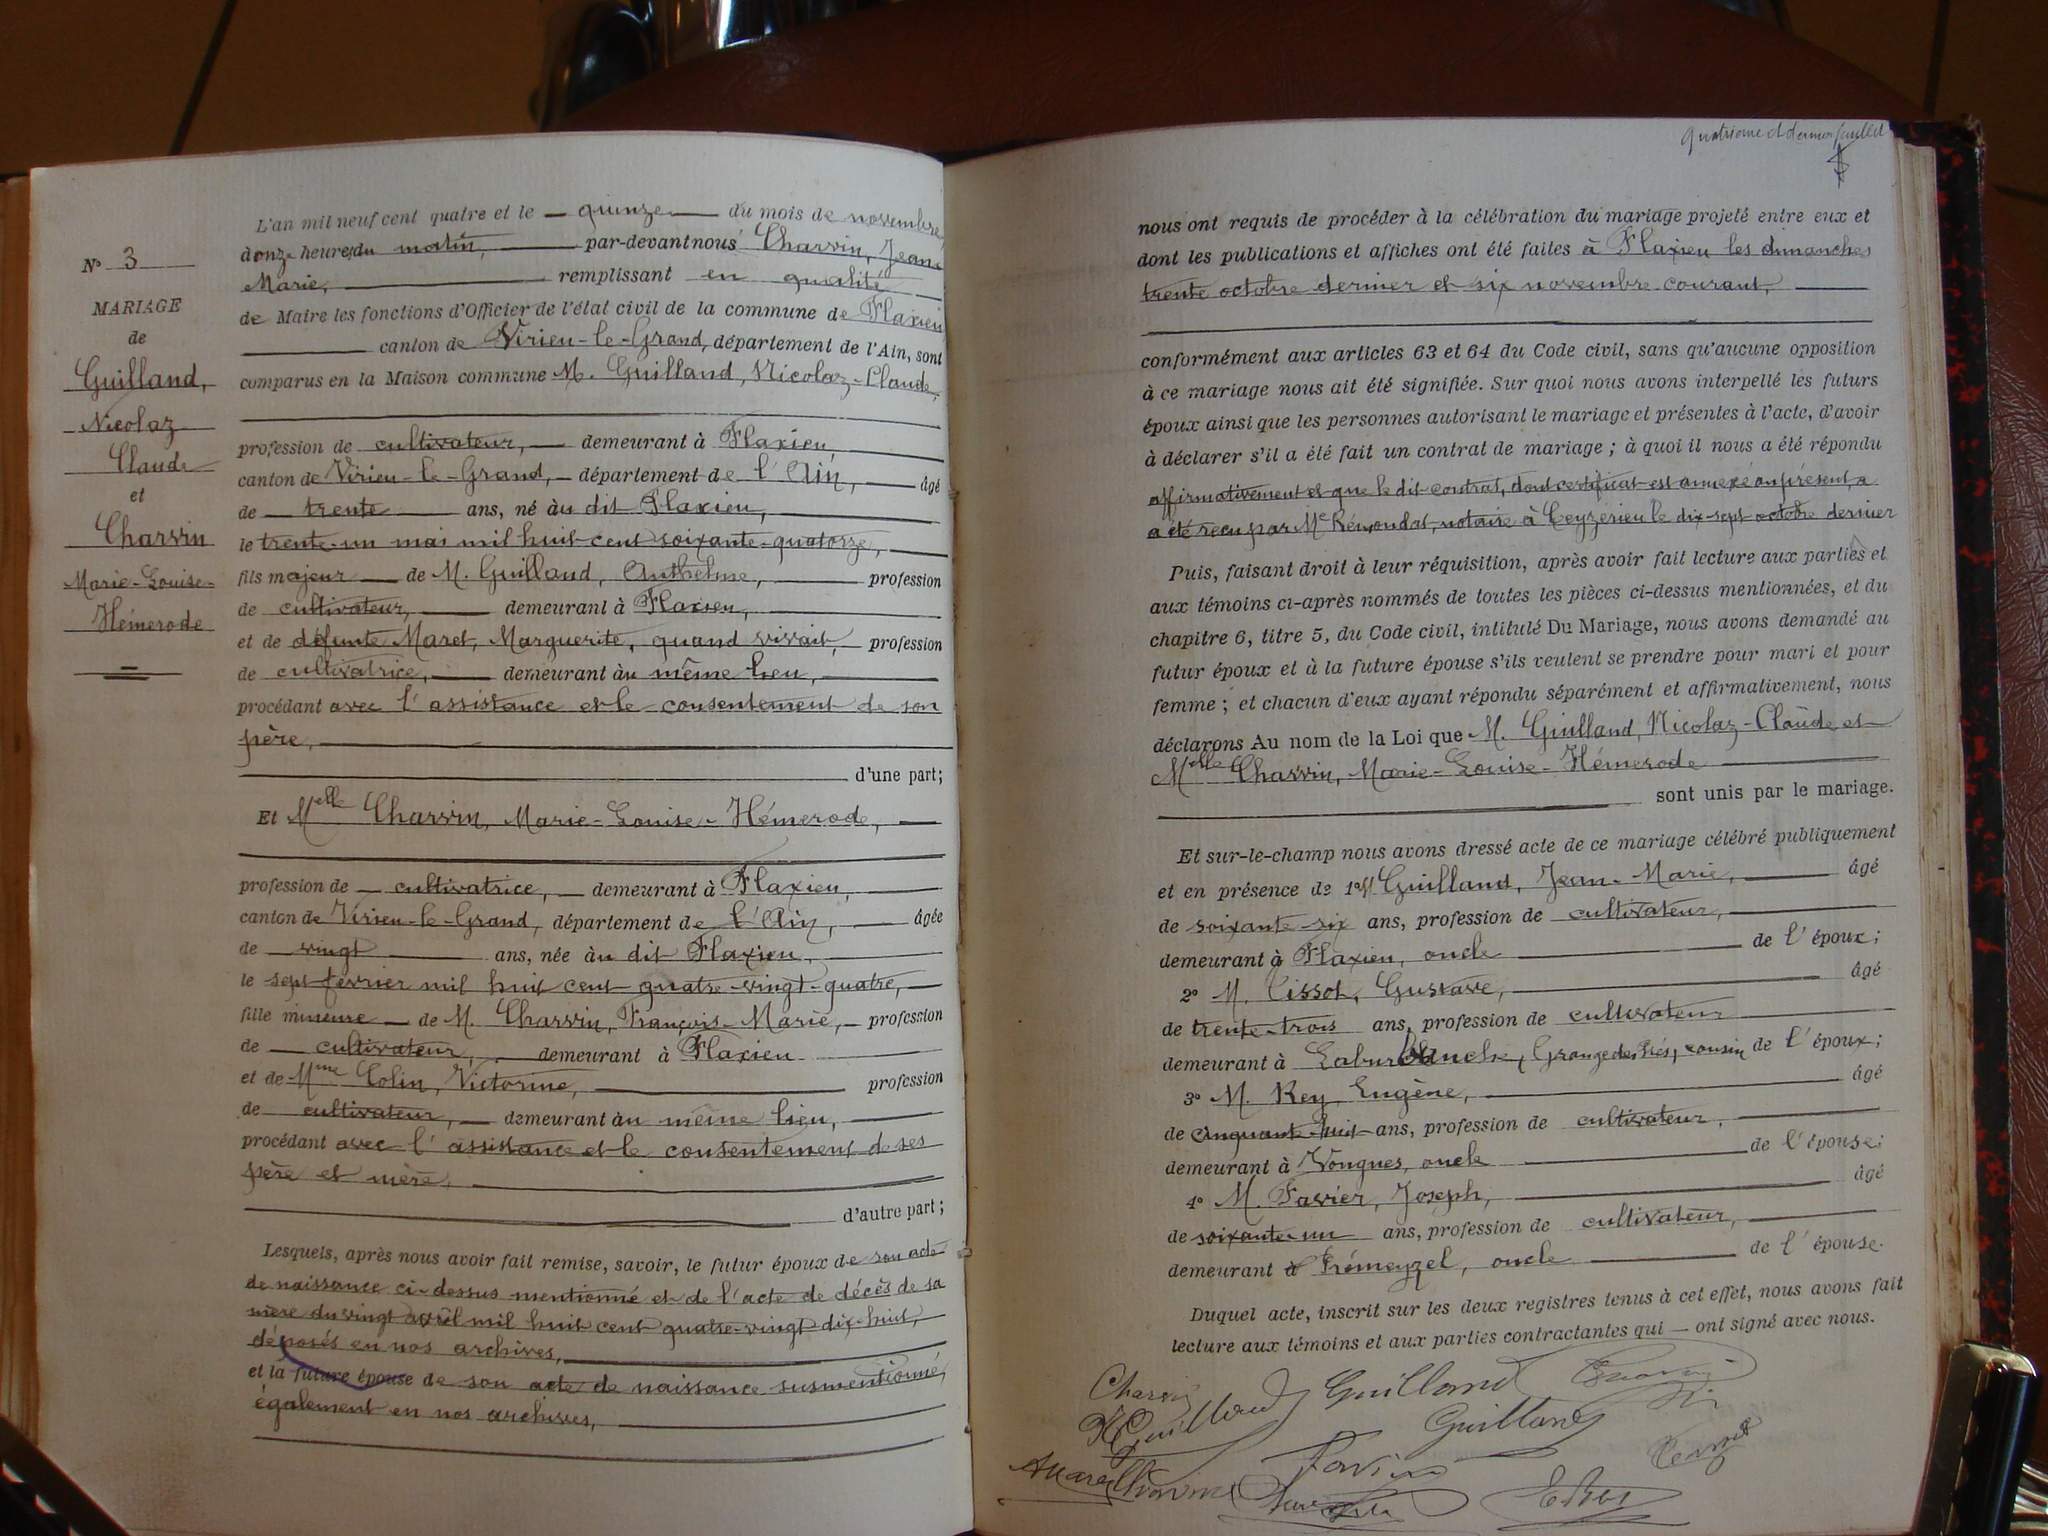 L'an mil neuf cent quatre et le quinze du mois de novembre,
à onze heures du matin, par-devant nous Charvin, Jean
Marie, remplissant en qualité
de Maire les fonctions d'Officier de l'état civil de la commune de Flaxieu
canton de Virieu-le-Grand, département de l'Ain, sont
comparus en la Maison commune M. Guilland, Nicolaz-Claude,
profession de cultivateur, demeurant à Flaxieu,
canton de Virieu-le-Grand, département de l'Ain, âgé
de trente ans, né àu dit Flaxieu,
le trente-un mai mil huit cent soixante-quatorze,
fils majeur de M. Guilland, Anthelme, profession
de cultivateur, demeurant à Flaxieu,
et de défunte Maret, Marguerite, quand vivait, profession
de cultivatrice, demeurant àu même lieu,
procédant avec l'assistance et le consentement de son
père,
d'une part;
Et Melle Charvin, Marie-Louise-Hémerode,
profession de cultivatrice, demeurant à Flaxieu,
canton de Virieu-le-Grand, département de l'Ain, âgée
de vingt ans, née àu dit Flaxieu,
le sept février mil huit cent quatre-vingt-quatre,
fille mineure de M. Charvin, François-Marie, profession
de cultivateur, demeurant à Flaxieu
et de Mme Colin, Victorine, profession
de cultivateur, demeurant àu même lieu,
procédant avec l'assistance et le consentement de ses
père et mère,
d'autre part;
Lesquels, après nous avoir fait remise, savoir, le futur époux de son acte
de naissance ci-dessus mentionné et de l'acte de décès de sa
mère du vingt avril mil huit cent quatre-vingt dix-huit,
déposés en nos archives,
et la future épouse de son acte de naissance susmentionné,
également en nos archives,
N° 3
MARIAGE
de
Guilland,
Nicolaz
Claude
et
Charvin
Marie-Louise-
Hémerode
Quatrième et dernier feuillet
nous ont requis de procéder à la célébration du mariage projeté entre eux et
dont les publications et affiches ont été faites à Flaxieu les dimanches
trente octobre dernier et six novembre courant,
conformément aux articles 63 et 64 du Code civil, sans qu'aucune opposition
à ce mariage nous ait été signifiée. Sur quoi nous avons interpellé les futurs
époux ainsi que les personnes autorisant le mariage et présentes à l'acte, d'avoir
à déclarer s'il a été fait un contrat de mariage; à quoi il nous a été répondu
affirmativement et que le dit contrat, dont certificat est annexé au présent, a
a été reçu par Me Rémondat, notaire à Ceyzerieu le dix-sept octobre dernier
Puis, faisant droit à leur réquisition, après avoir fait lecture aux parties et
aux témoins ci-après nommés de toutes les pièces ci-dessus mentionnées, et du
chapitre 6, titre 5, du Code civil, intitulé Du Mariage, nous avons demandé au
futur époux et à la future épouse s'ils veulent se prendre pour mari et pour
femme; et chacun d'eux ayant répondu séparément et affirmativement, nous
déclarons Au nom de la Loi que M. Guilland, Nicolaz-Claude et
Melle Charvin, Marie-Louise-Hémerode
sont unis par le mariage.
Et sur-le-champ nous avons dressé acte de ce mariage célébré publiquement
et en présence de 1° M. Guilland, Jean-Marie, âgé
de soixante six ans, profession de cultivateur,
demeurant à Flaxieu, oncle de l'époux;
2° M. Cissot, Gustave, âgé
de trente-trois ans, profession de cultivateur
demeurant à Grange des Prés, cousin de l'époux;
3° M. Rey, Eugène, âgé
de cinquante-huit ans, profession de cultivateur,
demeurant à Vongnes, oncle de l'épouse;
4° M. Favier, Joseph, âgé
de soixante-un ans, profession de cultivateur,
demeurant à Prémeyzel, oncle de l'épouse.
Duquel acte, inscrit sur les deux registres tenus à cet effet, nous avons fait
lecture aux témoins et aux parties contractantes qui ont signé avec nous.
Charvin Guilland
N Guilland Guilland
Charvin E Rey